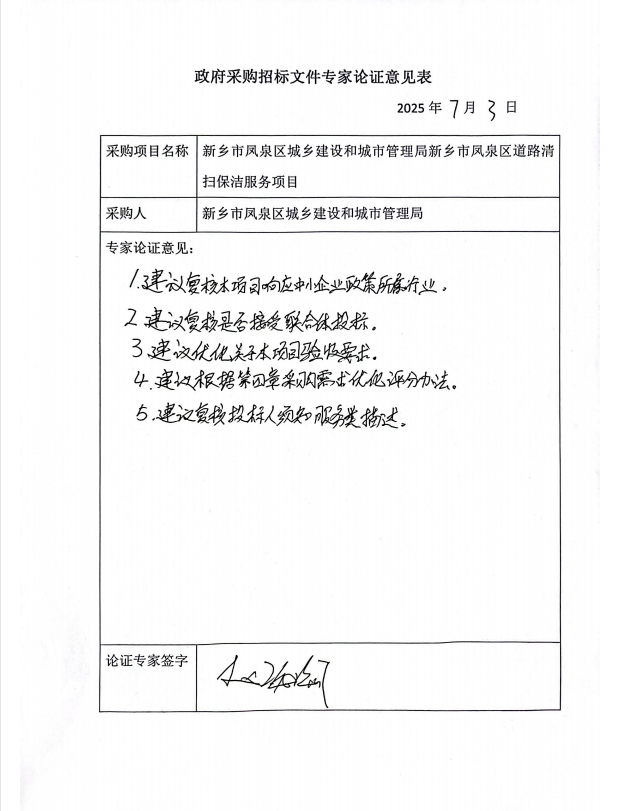 政府采购招标文件专家论证意见表
2025 年 7 月 3 日
采购项目名称
新乡市凤泉区城乡建设和城市管理局新乡市凤泉区道路清
扫保洁服务项目
采购人
新乡市凤泉区城乡建设和城市管理局
专家论证意见：
1.建议复核本项目响应中小企业政策所属行业。
2.建议复核是否接受联合体投标。
3.建议优化关于本项目验收要求。
4.建议根据第四章采购需求优化评分办法。
5.建议复核投标人须知服务类描述。
论证专家签字